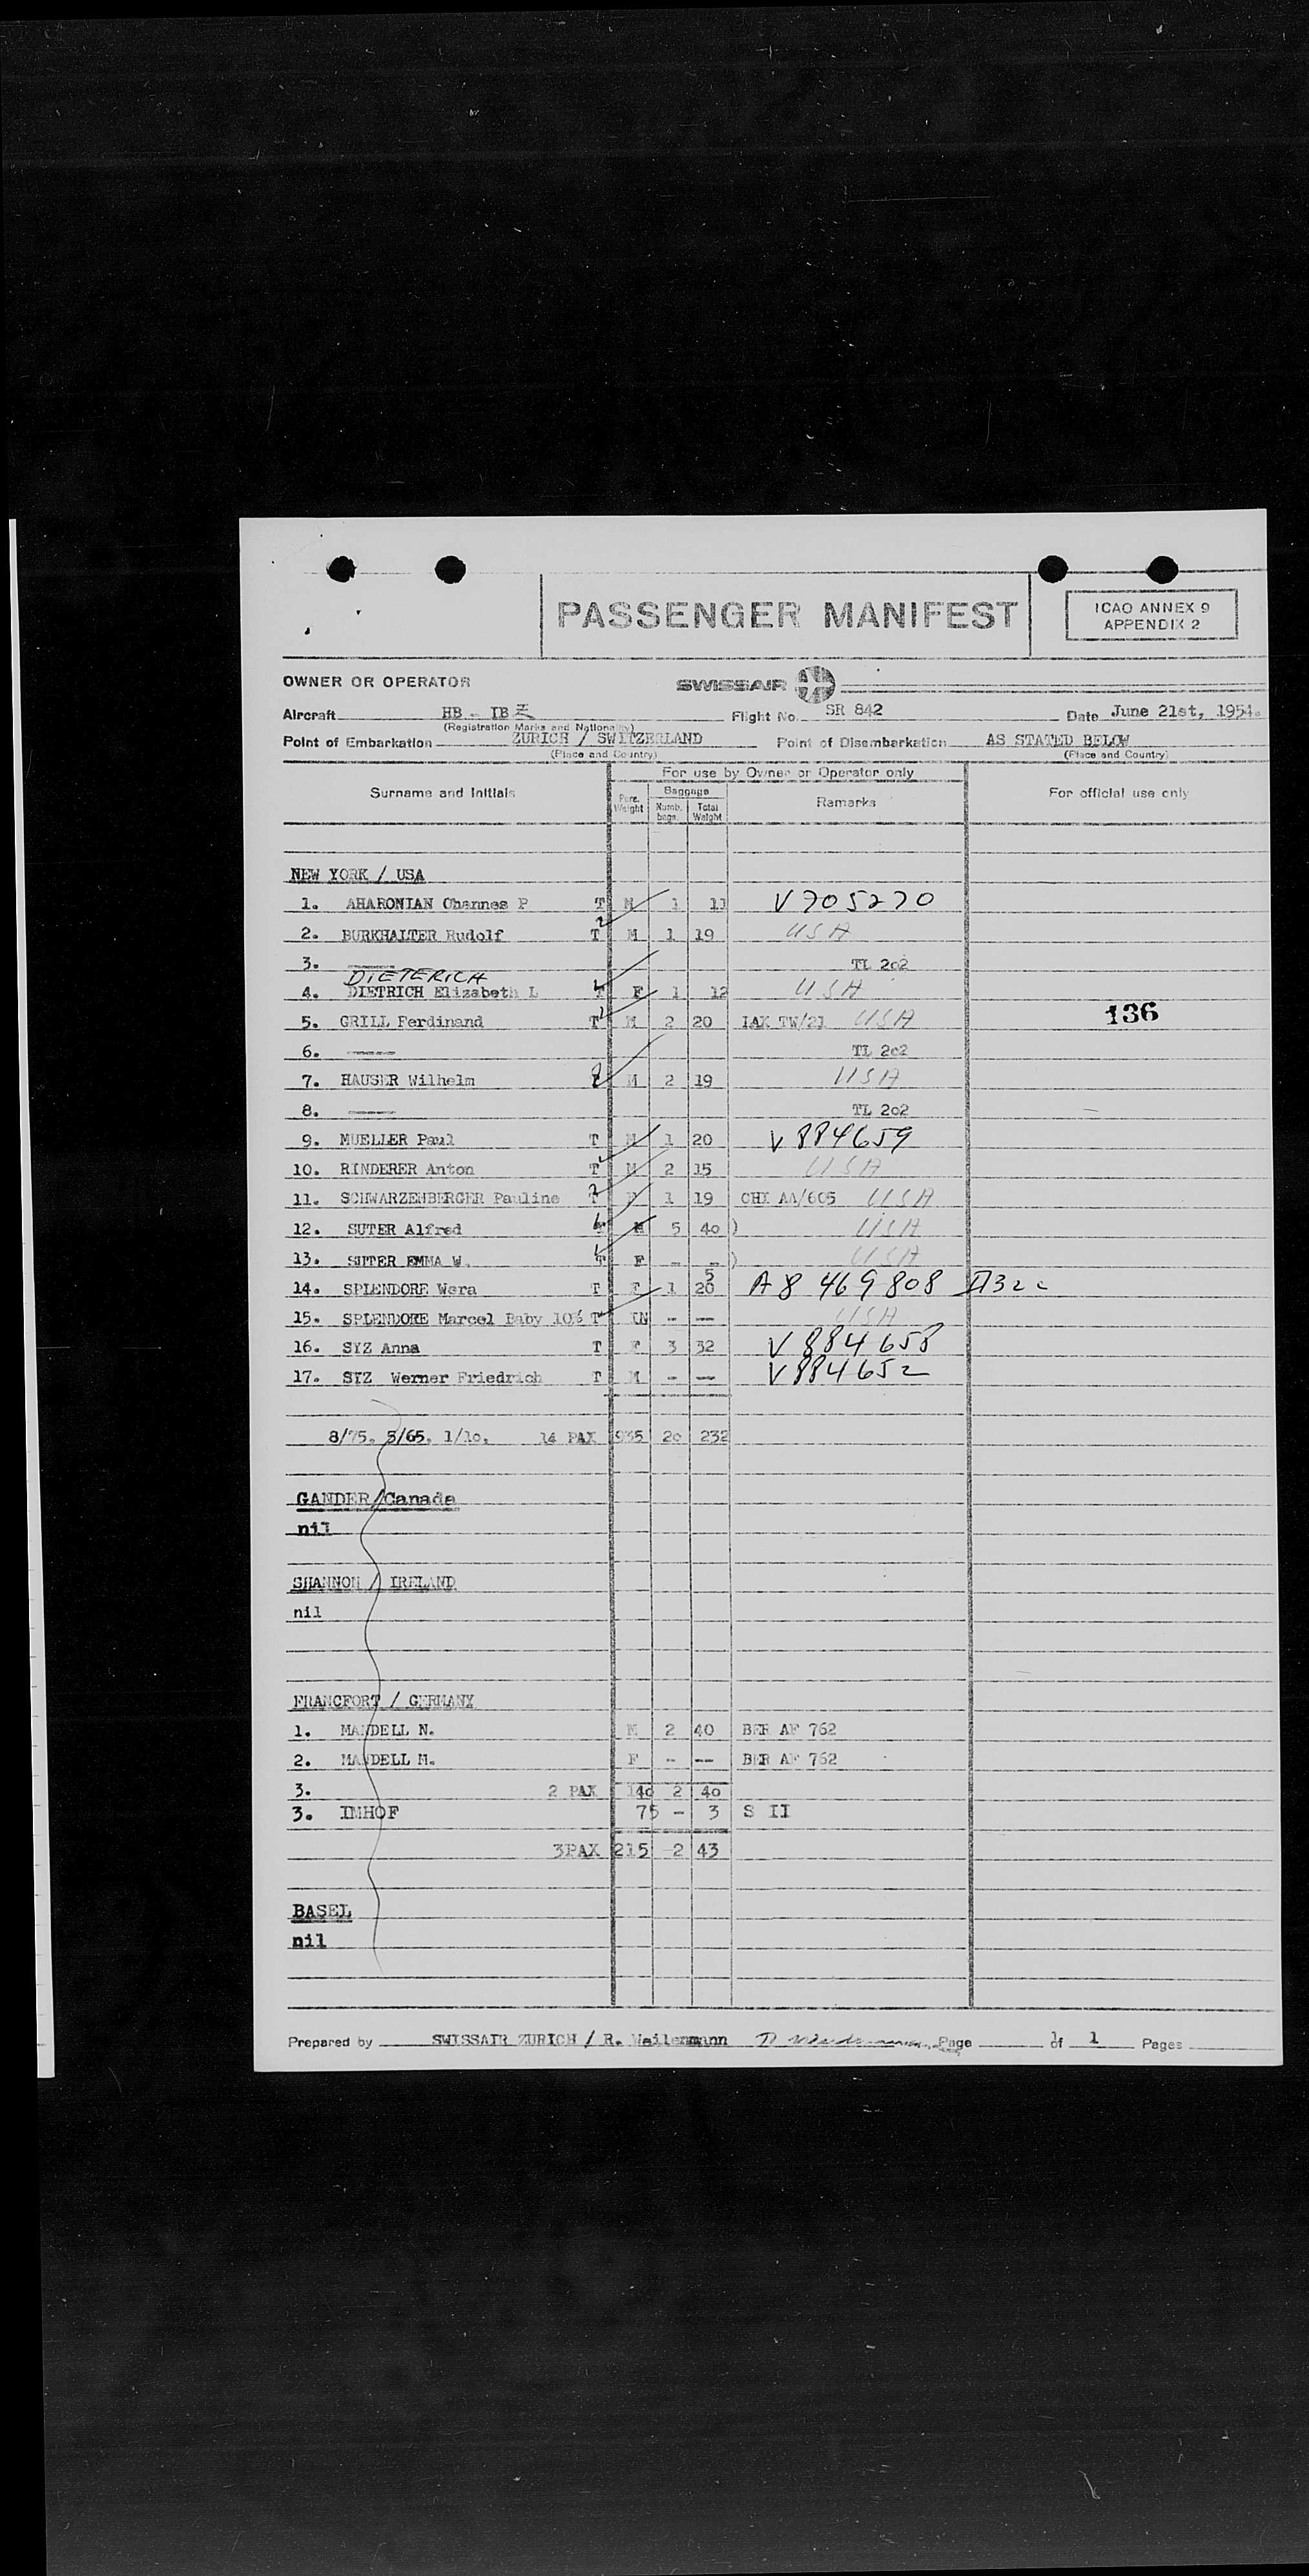 PASSENGER MANIFEST
ICAO ANNEX 9
APPENDIX 2
OWNER OR OPERATOR SWISSAIR
Aircraft HB - IB Z Flight No. SR 842 Date June 21st, 1954.
(Registration Marks and Nationality)
Point of Embarkation ZURICH / SWITZERLAND Point of Disembarkation AS STATED BELOW
(Place and Country) (Place and Country)
For use by Owner or Operator only
Surname and Initials Pers. Weight Baggage Numb. bags. Total Weight Remarks For official use only
NEW YORK / USA
1. AHARONIAN Ohannes P T M 1 11 V705270
2. BURKHALTER Rudolf T M 1 19 USA
3. ----- TL 2o2
DIETERICH
4. DIETRICH Elizabeth L T F 1 12 USA
5. GRILL Ferdinand T M 2 20 IAX TW/21 USA 136
6. ----- TL 2o2
7. HAUSER Wilhelm T M 2 19 USA
8. ----- TL 2o2
9. MUELLER Paul T M 1 20 V884659
10. RINDERER Anton T M 2 15 USA
11. SCHWARZENBERGER Pauline T F 1 19 CHI AA/605 USA
12. SUTER Alfred T M 5 40 ) USA
13. SUTER EMMA W. T F - -- ) USA
14. SPLENDORE Wera T F 1 20 5 A8 469808
15. SPLENDORE Marcel Baby 10% T IN - -- USA
16. SYZ Anna T F 3 32 V884658
17. SYZ Werner Friedrich T M - -- V884652
8/75. 5/65. 1/1o. 14 PAX 935 2o 232
GANDER/Canada
nil
SHANNON / IRELAND
nil
FRANCFORT / GERMANY
1. MANDELL N. M 2 40 BER AF 762
2. MANDELL M. F - -- BER AF 762
3. 2 PAX 14o 2 4o
3. IMHOF 75 - 3 S II
3PAX 215 2 43
BASEL
nil
Prepared by SWISSAIR ZURICH / R. Weilenmann Page 1 of 1 Pages